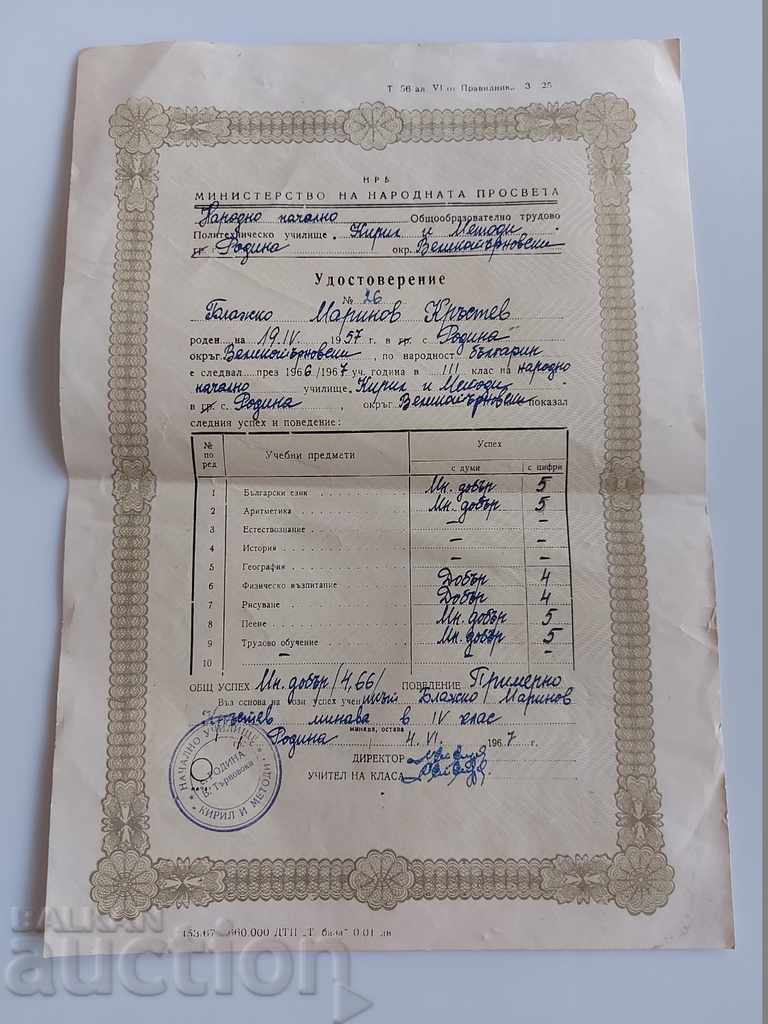 Т 56 ал. VI от Правилник. З 25
НРБ
МИНИСТЕРСТВО НА НАРОДНАТА ПРОСВЕТА
Народно начално Общообразователно трудово
Политехническо училище „Кирил и Методи"
гр. с. Родина окр. Великотърновски
Удостоверение
№ 26
Блажко Маринов Кръстев
роден на 19.IV. 1957 г. в гр. с. Родина
окръг Великотърновски, по народност българин
е следвал през 1966/1967 уч. година в III клас на народно
начално училище „Кирил и Методи"
в гр. с. Родина, окръг Великотърновски показал
следния успех и поведение:
№ по ред Учебни предмети Успех
с думи с цифри
1 Български език Мн. добър 5
2 Аритметика Мн. добър 5
3 Естествознание — —
4 История — —
5 География — —
6 Физическо възпитание Добър 4
7 Рисуване Добър 4
8 Пеене Мн. добър 5
9 Трудово обучение Мн. добър 5
10 — —
ОБЩ УСПЕХ Мн. добър /4,66/ ПОВЕДЕНИЕ Примерно
Въз основа на този успех ученикът Блажко Маринов
Кръстев минава в IV клас
минава, остава
Родина 4.VI. 1967 г.
ДИРЕКТОР
УЧИТЕЛ НА КЛАСА
НАЧАЛНО УЧИЛИЩЕ
КИРИЛ И МЕТОДИ
РОДИНА
В. Търновска
153.67 660.000 ДТП „Т. база" 0.01 лв
BALKAN
auction